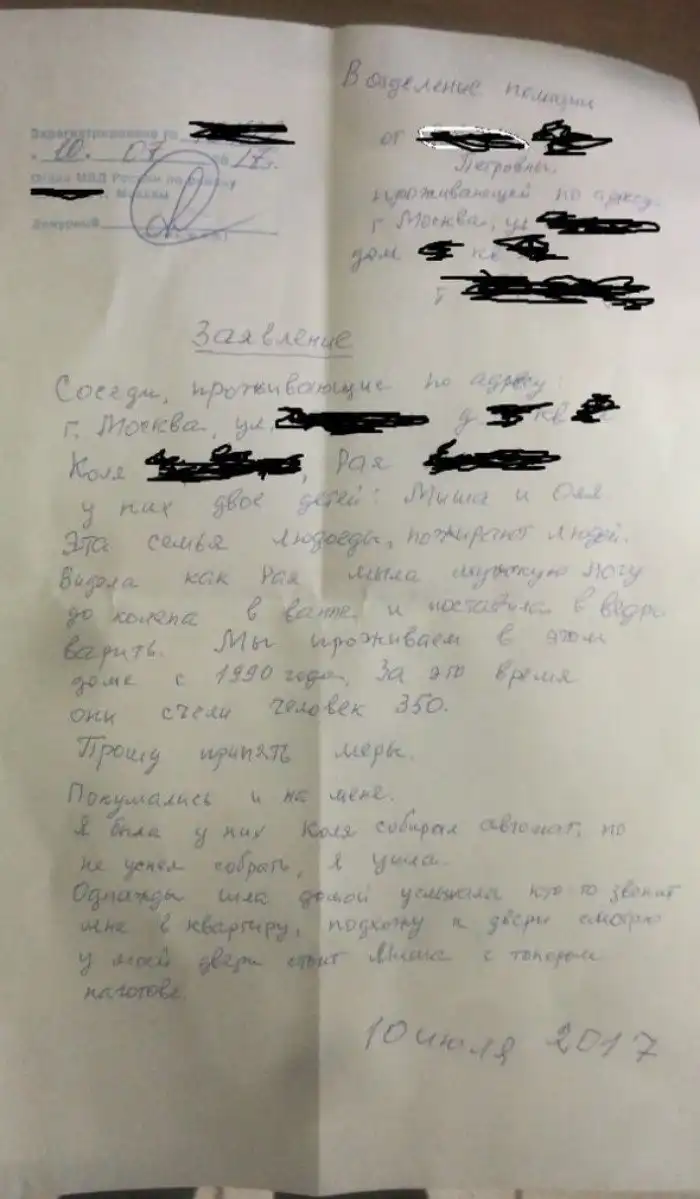 В отделение полиции
Зарегистрировано
10. 07 17г.
от
Отдел МВД России по району
Петровны,
г. Москвы
проживающей по адресу
г. Москва, ул
Дежурный
дом кв
Заявление
Соседи, проживающие по адресу:
г. Москва, ул. д. кв
Коля , Рая
у них двое детей: Миша и Оля
Эта семья людоеды, пожирают людей.
Видела как Рая мыла мужскую ногу
до колена в ванне и поставила в ведре
варить. Мы проживаем в этом
доме с 1990 года, За это время
они съели человек 350.
Прошу принять меры.
Покумались и на мене.
Я была у них Коля собирал автомат, но
не успел собрать, я ушла.
Однажды шла домой услыжала кто то звонит
мне в квартиру, подхожу к двери смотрю
у моей двери стоит Миша с топором
наготове.
10 июля 2017